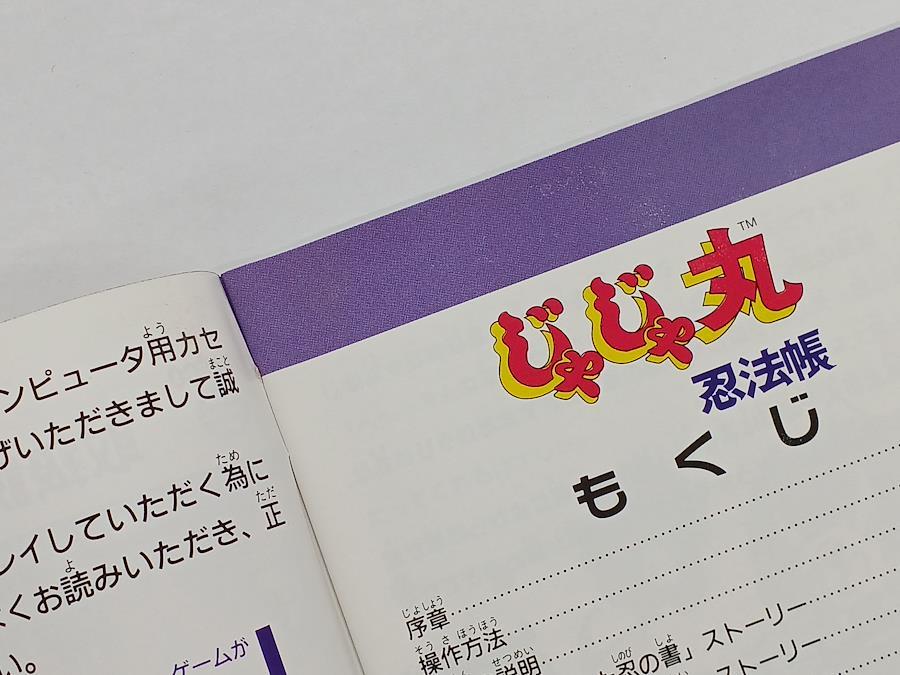 ンピュータ用カセ
げいただきまして誠
レイしていただく為に
くお読みいただき、正
い。
ゲームが
じゃじゃ丸™
忍法帳
もくじ
序章
操作方法
説明
忍の書」ストーリー
ストーリー